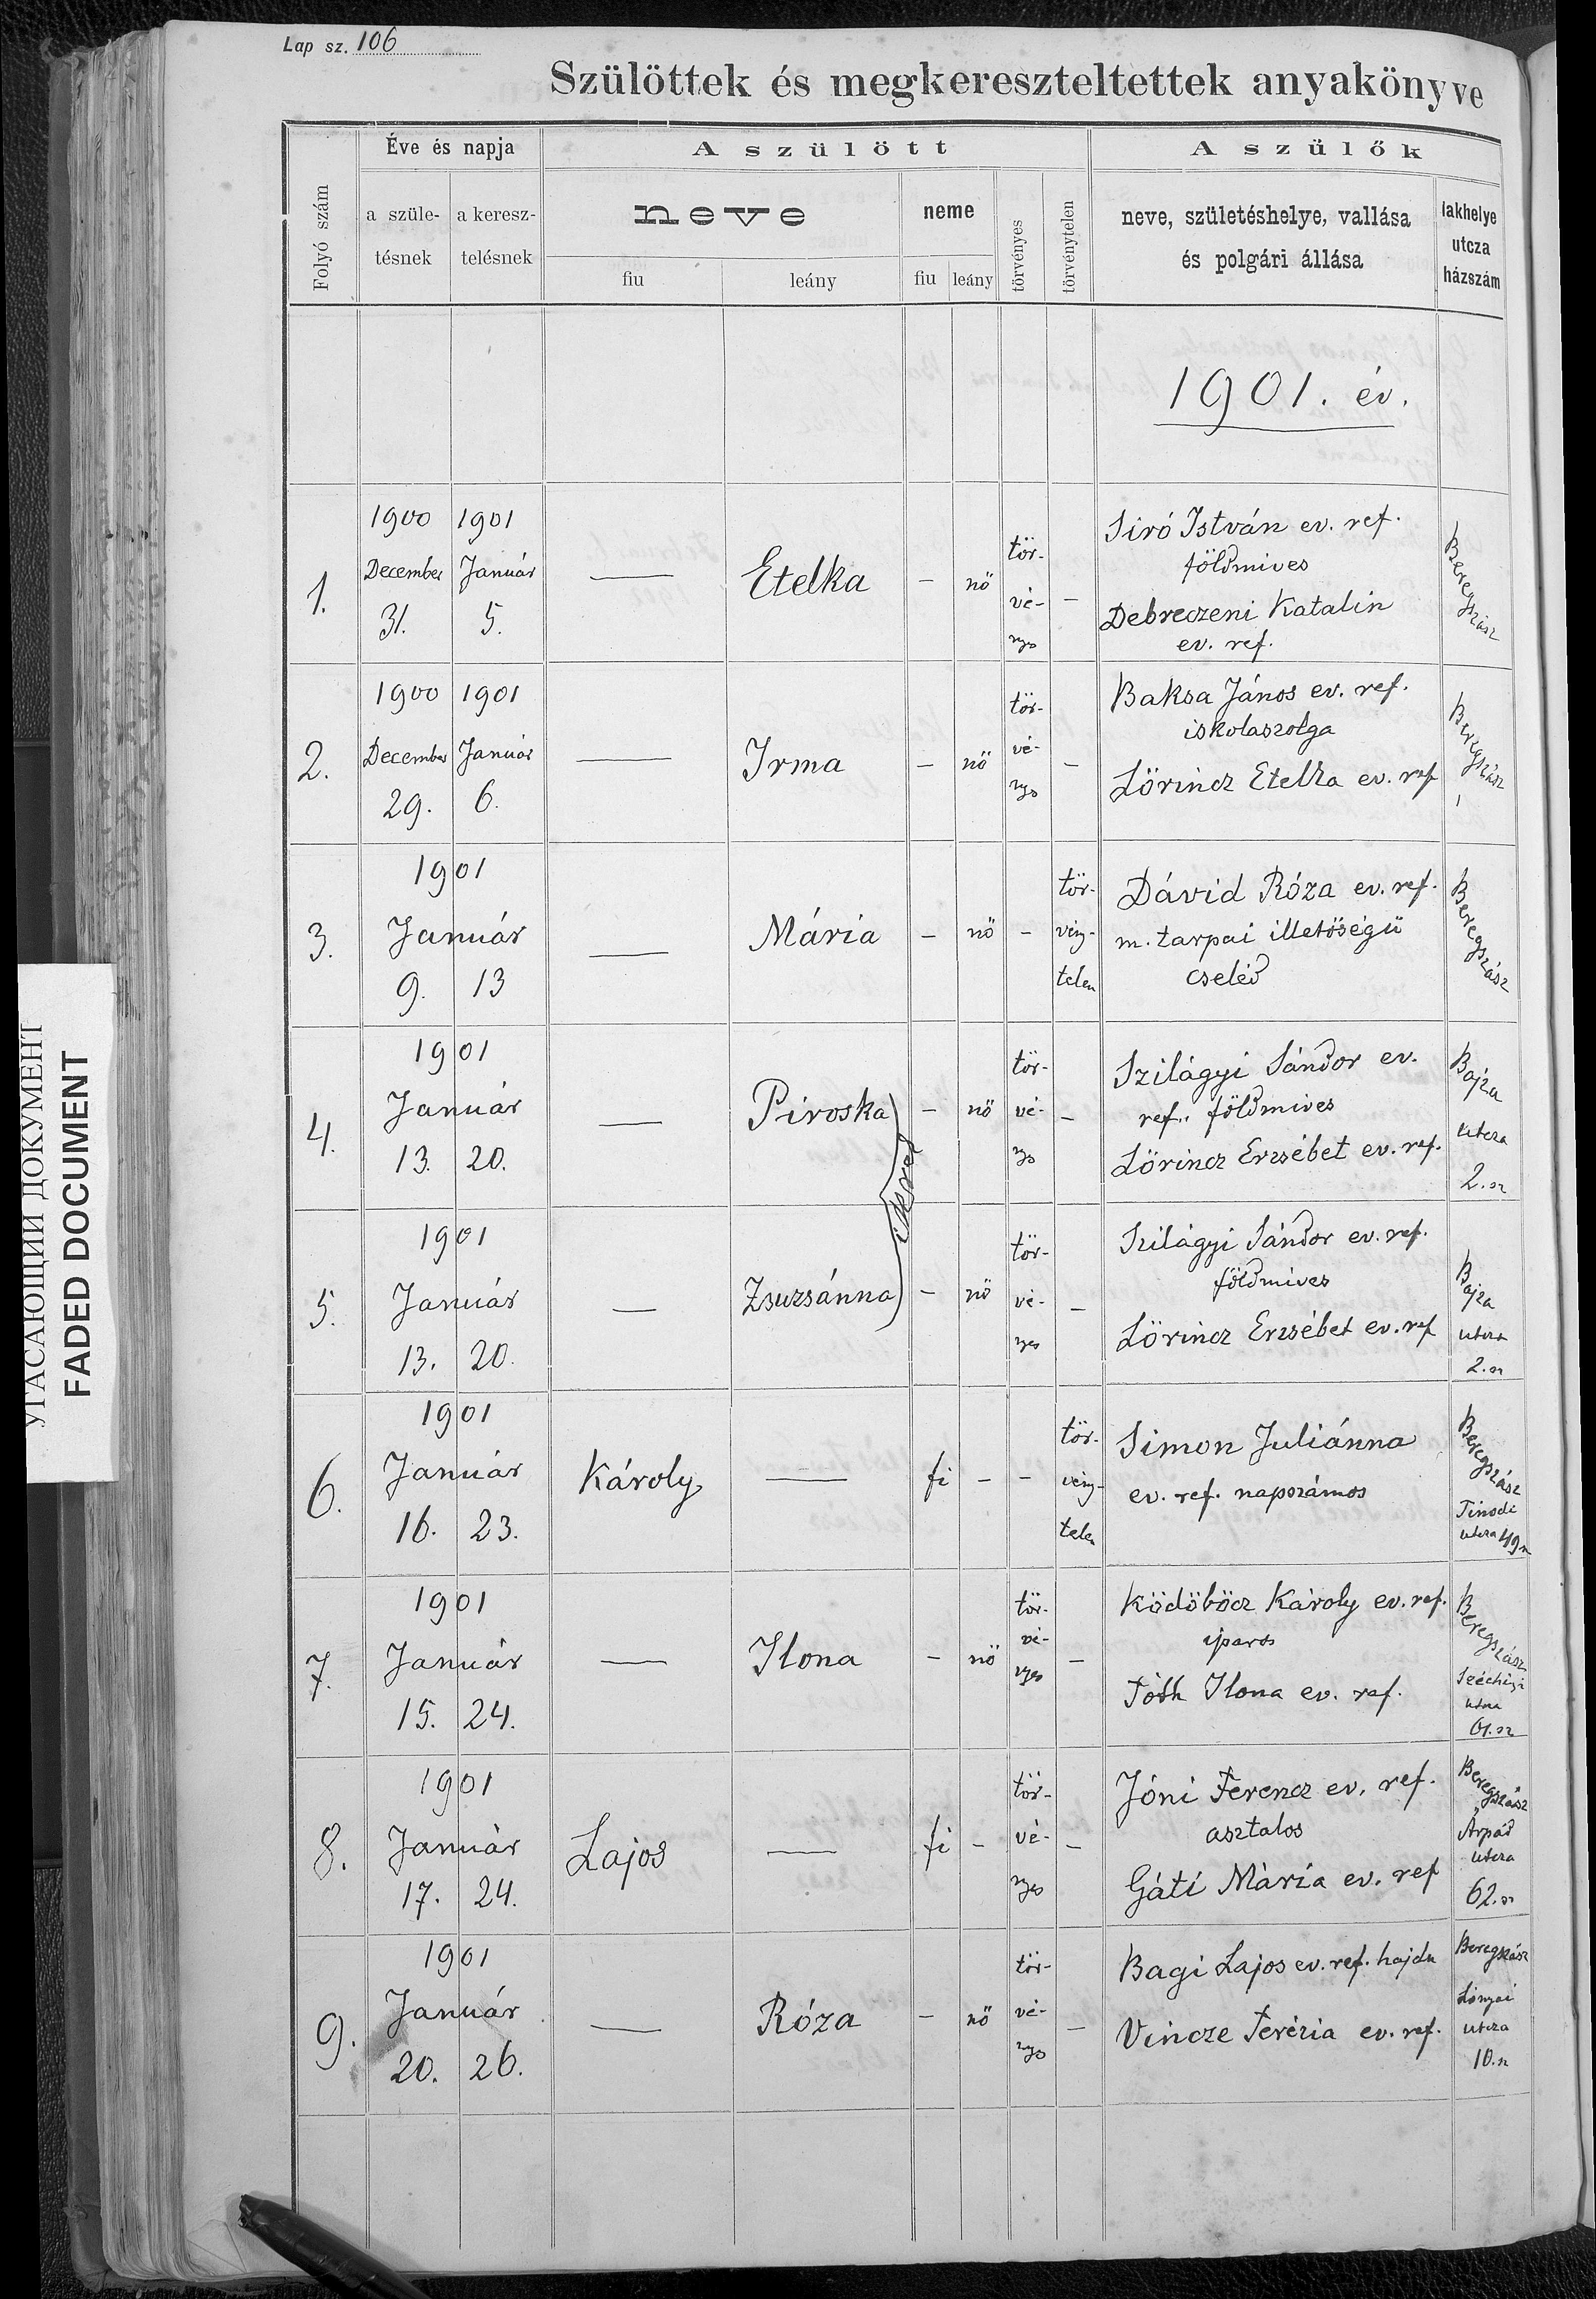 Lap sz. 106
Szülöttek és megkereszteltettek anyakönyve
Folyó szám
Éve és napja
a szüle-
tésnek
a keresz-
telésnek
A szülött
neve
fiu
leány
neme
fiu
leány
törvényes
törvénytelen
A szülők
neve, születéshelye, vallása
és polgári állása
lakhelye
utcza
házszám
1901. év.
1.
1900 1901
December Január
31. 5.
—
Etelka
-
nő
tör-
vé-
nyes
-
Siró István ev. ref.
földmives
Debreczeni Katalin
ev. ref.
Beregszász
2.
1900 1901
December Január
29. 6.
—
Irma
-
nő
tör-
vé-
nyes
-
Baksa János ev. ref.
iskolaszolga
Lörincz Etelka ev. ref
Beregszász
3.
1901
Január
9. 13
—
Mária
-
nő
-
tör-
vény-
telen
Dávid Róza ev. ref.
m. tarpai illetőségü
cseléd
Beregszász
4.
1901
Január
13. 20.
—
Piroska
ikrek
-
nő
tör-
vé-
nyes
-
Szilágyi Sándor ev.
ref. földmives
Lörincz Erzsébet ev. ref.
Bajza
utcza
2. sz
5.
1901
Január
13. 20.
—
Zsuzsánna
-
nő
tör-
vé-
nyes
-
Szilágyi Sándor ev. ref.
földmives
Lörincz Erzsébet ev. ref
Bajza
utcza
2. sz
6.
1901
Január
16. 23.
Károly
—
fi
-
-
tör-
vény-
telen
Simon Juliánna
ev. ref. napszámos
Beregszász
Tinodi
utcza 49 sz
7.
1901
Január
15. 24.
—
Ilona
-
nő
tör-
vé-
nyes
-
Ködöböcz Károly ev. ref.
iparos
Tóth Ilona ev. ref.
Beregszász
Széchényi
utcza
61. sz
8.
1901
Január
17. 24.
Lajos
—
fi
-
tör-
vé-
nyes
-
Jóni Ferencz ev. ref.
asztalos
Gáti Mária ev. ref
Beregszász
Árpád
utcza
62. sz
9.
1901
Január
20. 26.
—
Róza
-
nő
tör-
vé-
nyes
-
Bagi Lajos ev. ref. hajdu
Vincze Terézia ev. ref.
Beregszász
Lónyai
utcza
10. sz
УГАСАЮЩИЙ ДОКУМЕНТ
FADED DOCUMENT